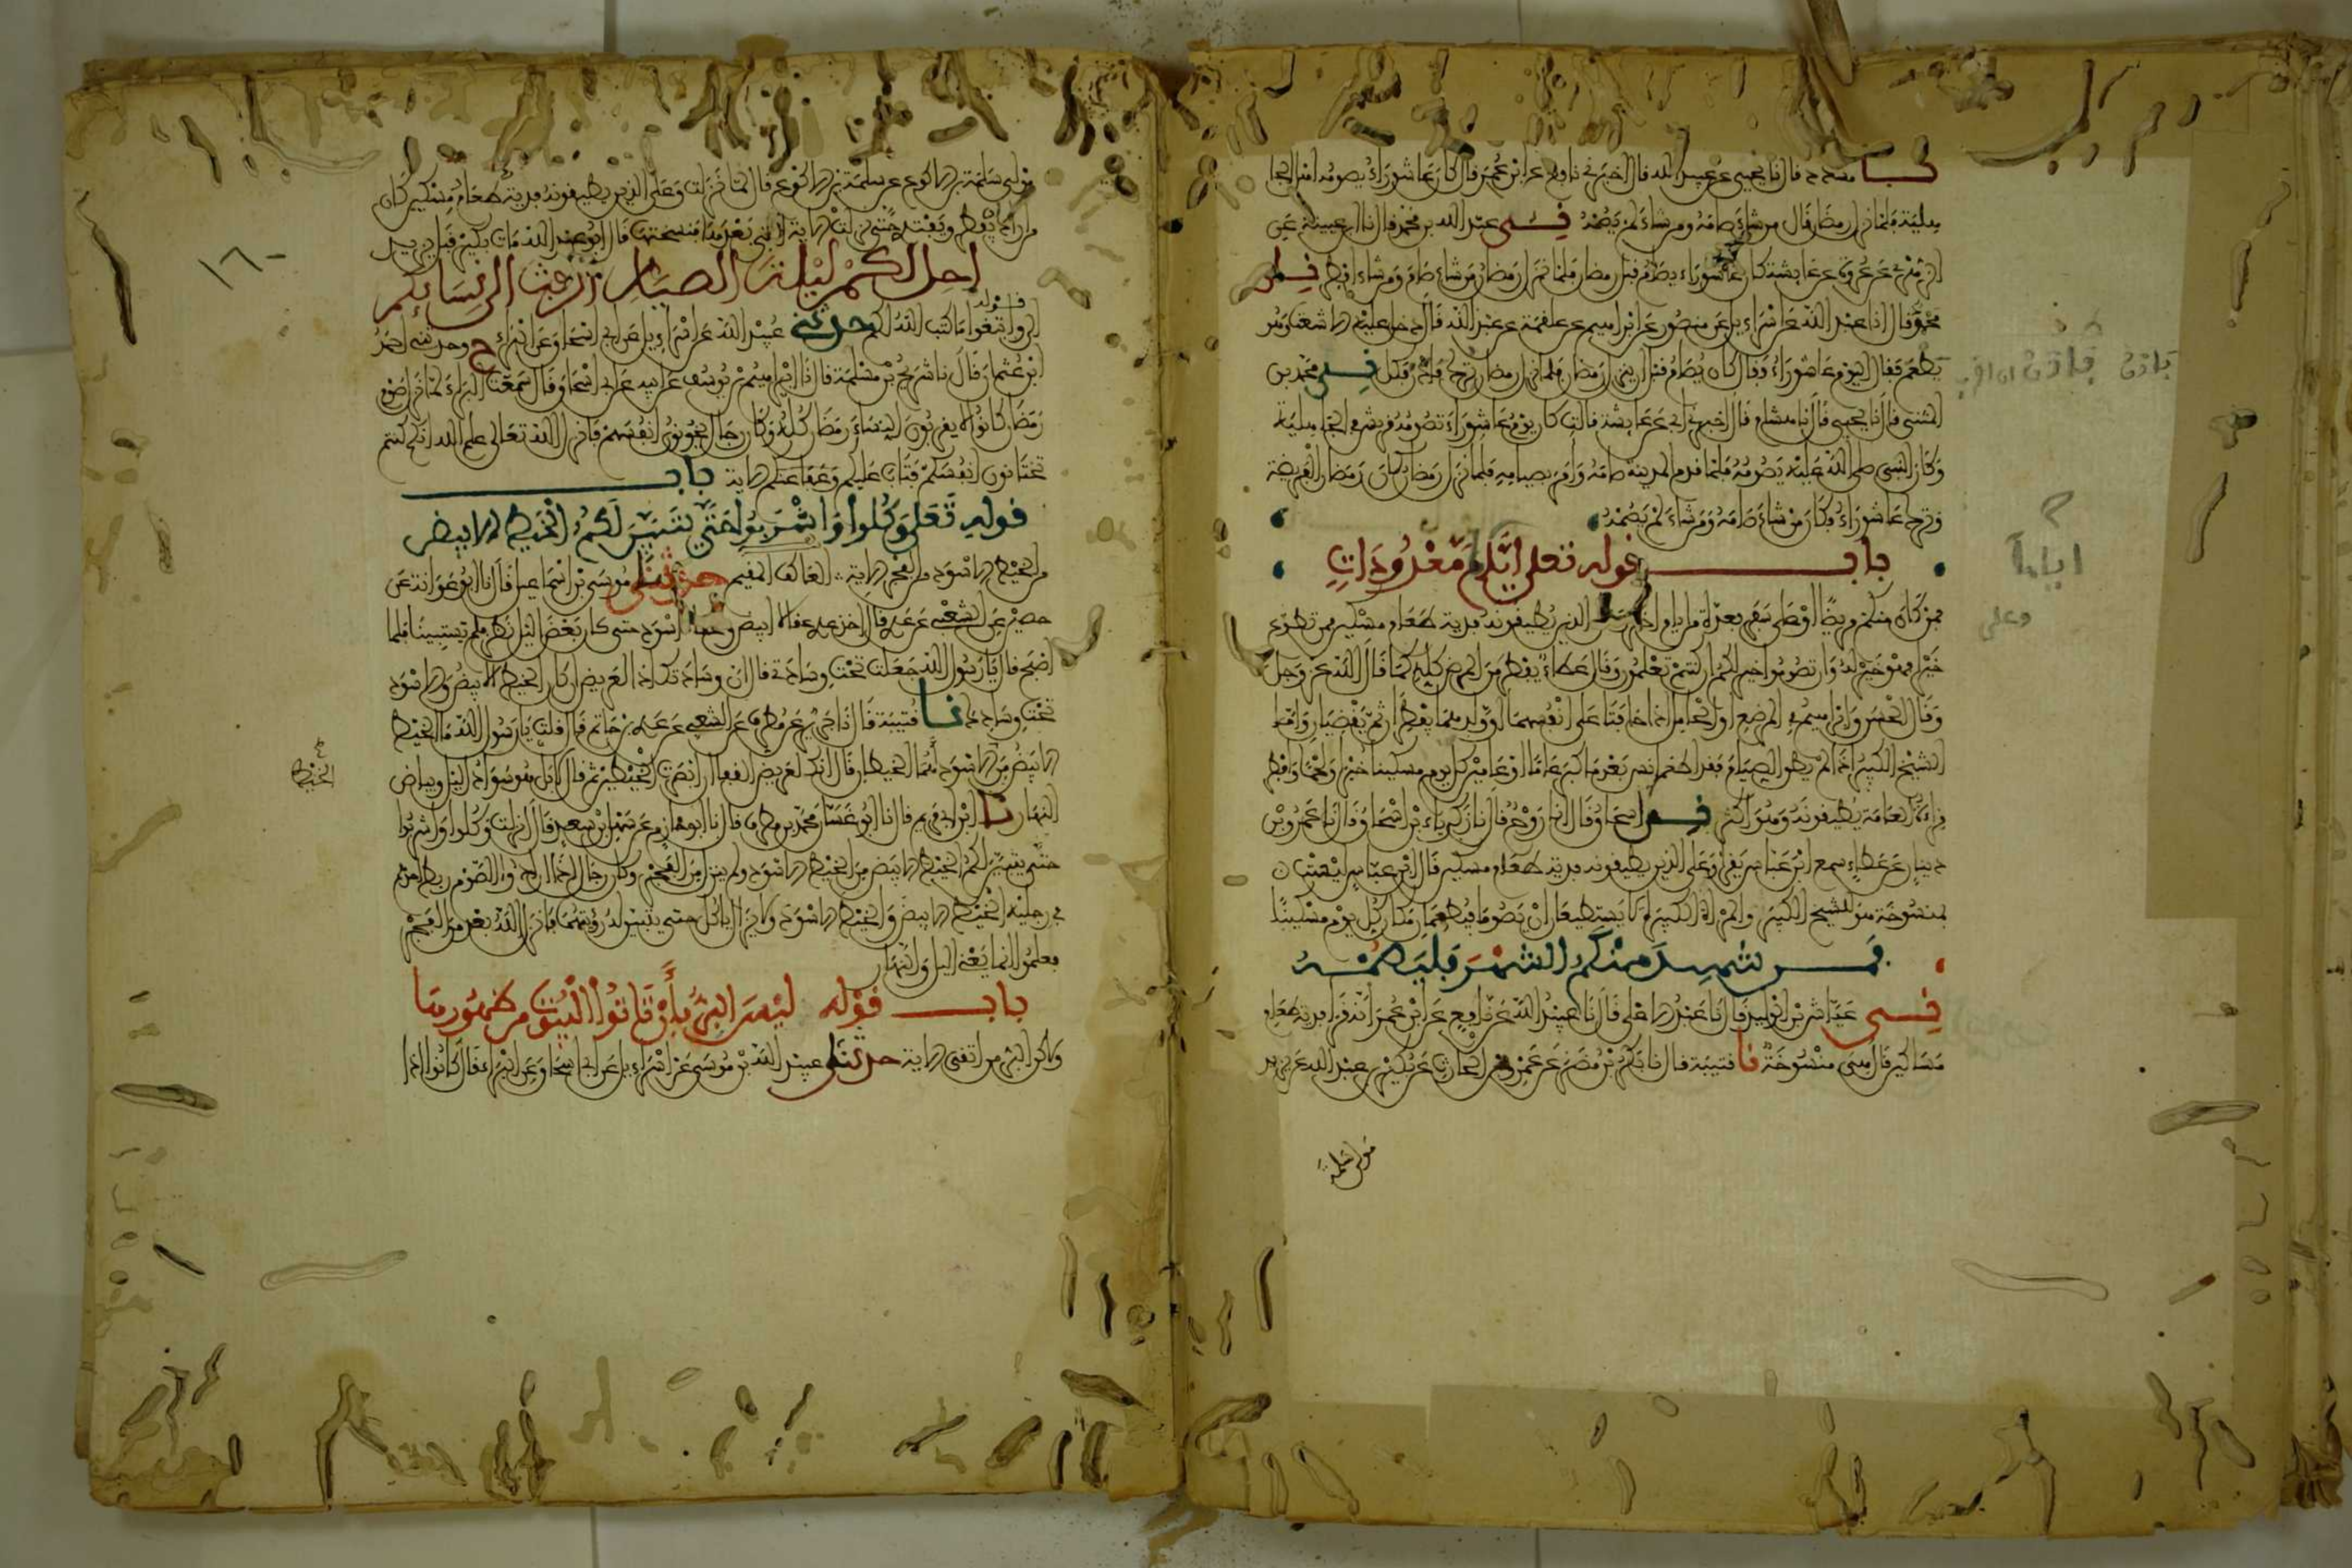 نا مسدد قال نا يحيى عن عبيد الله قال اخبرني نافع عن ابن عمر قال كان عاشوراء يصومه اهل الجا
هلية فلما نزل رمضان قال من شاء صامه ومن شاء لم يصمه نى عبد الله بن محمد قال نا ابن عيينة عن
الزهري عن عروة عن عائشة كان عاشوراء يصام قبل رمضان فلما نزل رمضان من شاء صام ومن شاء افطر نى
محمود قال انا عبيد الله عن اسراءيل عن منصور عن ابراهيم عن علقمة عن عبد الله قال دخل عليه الاشعث وهو
يطعم فقال اليوم عاشوراء فقال كان يصام قبل ان ينزل رمضان فلما نزل رمضان ترك فادن فكل نى محمد بن
المثنى قال نا يحيى قال نا هشام قال اخبرني ابي عن عائشة قالت كان يوم عاشوراء تصومه قريش في الجاهلية
وكان النبي صلى الله عليه يصومه فلما قدم المدينة صامه وامر بصيامه فلما نزل رمضان كان رمضان الفريضة
وترك عاشوراء فكان من شاء صامه ومن شاء لم يصمه
باب قوله تعلى اياما معدودات
فمن كان منكم مريضا او على سفر فعدة من ايام اخر وعلى الذين يطيقونه فدية طعام مسكين فمن تطوع
خيرا فهو خير له وان تصوموا خير لكم ان كنتم تعلمون وقال عطاء يفطر من المرض كله كما قال الله عز وجل
وقال الحسن وابراهيم في المرضع او الحامل اذا خافتا على انفسهما او ولدهما تفطران ثم تقضيان واما
الشيخ الكبير اذا لم يطق الصيام فقد اطعم انس بعد ما كبر عاما او عامين كل يوم مسكينا خبزا ولحما وافطر
قراءة العامة يطيقونه وهو اكثر نى اسحاق قال انا روح قال نا زكرياء بن اسحاق قال نا عمرو بن
دينار عن عطاء سمع ابن عباس يقرا وعلى الذين يطيقونه فدية طعام مسكين قال ابن عباس ليست
بمنسوخة هو للشيخ الكبير والمراة الكبيرة لا يستطيعان ان يصوما فيطعمان مكان كل يوم مسكينا
فمن شهد منكم الشهر فليصمه
نى عياش بن الوليد قال نا عبد الاعلى قال نا عبيد الله عن نافع عن ابن عمر انه قرا فدية طعام
مساكين قال هي منسوخة نا قتيبة قال نا بكر بن مضر عن عمرو بن الحارث عن بكير بن عبد الله عن يزيد
مولى سلمة
فادن
اياما
وعلى
١٦٠
مولى سلمة بن الاكوع عن سلمة بن الاكوع قال لما نزلت وعلى الذين يطيقونه فدية طعام مسكين كان
من اراد ان يفطر ويفتدي حتى نزلت الاية التي بعدها فنسختها قال ابو عبد الله مات بكير قبل يزيد
احل لكم ليلة الصيام الرفث الى نسائكم
قوله
الى وابتغوا ما كتب الله لكم حدثنى عبيد الله عن اسراءيل عن ابي اسحاق عن البراء ح وحدثني احمد
ابن عثمان قال نا شريح بن مسلمة قال نا ابراهيم بن يوسف عن ابيه عن ابي اسحاق قال سمعت البراء لما نزل صوم
رمضان كانوا لا يقربون النساء رمضان كله وكان رجال يخونون انفسهم فانزل الله تعالى علم الله انكم كنتم
تختانون انفسكم فتاب عليكم وعفا عنكم الاية باب
قوله تعلى وكلوا واشربوا حتى يتبين لكم الخيط الابيض
من الخيط الاسود من الفجر الاية العاكف المقيم حدثنى موسى بن اسماعيل قال نا ابو عوانة عن
حصين عن الشعبي عن عدي قال اخذ عدي عقالا ابيض وعقالا اسود حتى كان بعض الليل نظر فلم يستبينا فلما
اصبح قال يا رسول الله جعلت تحت وسادتي قال ان وسادتك اذا لعريض ان كان الخيط الابيض والاسود
تحت وسادتك نا قتيبة قال نا جرير عن مطرف عن الشعبي عن عدي بن حاتم قال قلت يا رسول الله ما الخيط
الابيض من الاسود اهما الخيطان قال انك لعريض القفا ان ابصرت الخيطين ثم قال لا بل هو سواد الليل وبياض
الخيط
النهار نا ابن ابي مريم قال نا ابو غسان محمد بن مطرف قال نا ابو حازم عن سهل بن سعد قال انزلت وكلوا واشربوا
حتى يتبين لكم الخيط الابيض من الخيط الاسود ولم ينزل من الفجر وكان رجال اذا ارادوا الصوم ربط احدهم
في رجليه الخيط الابيض والخيط الاسود ولا يزال ياكل حتى يتبين له رؤيتهما فانزل الله بعد من الفجر
فعلموا انما يعني الليل والنهار
باب قوله ليس البر بان تاتوا البيوت من ظهورها
ولكن البر من اتقى الاية حدثنى عبيد الله بن موسى عن اسراءيل عن ابي اسحاق عن البراء قال كانوا اذا